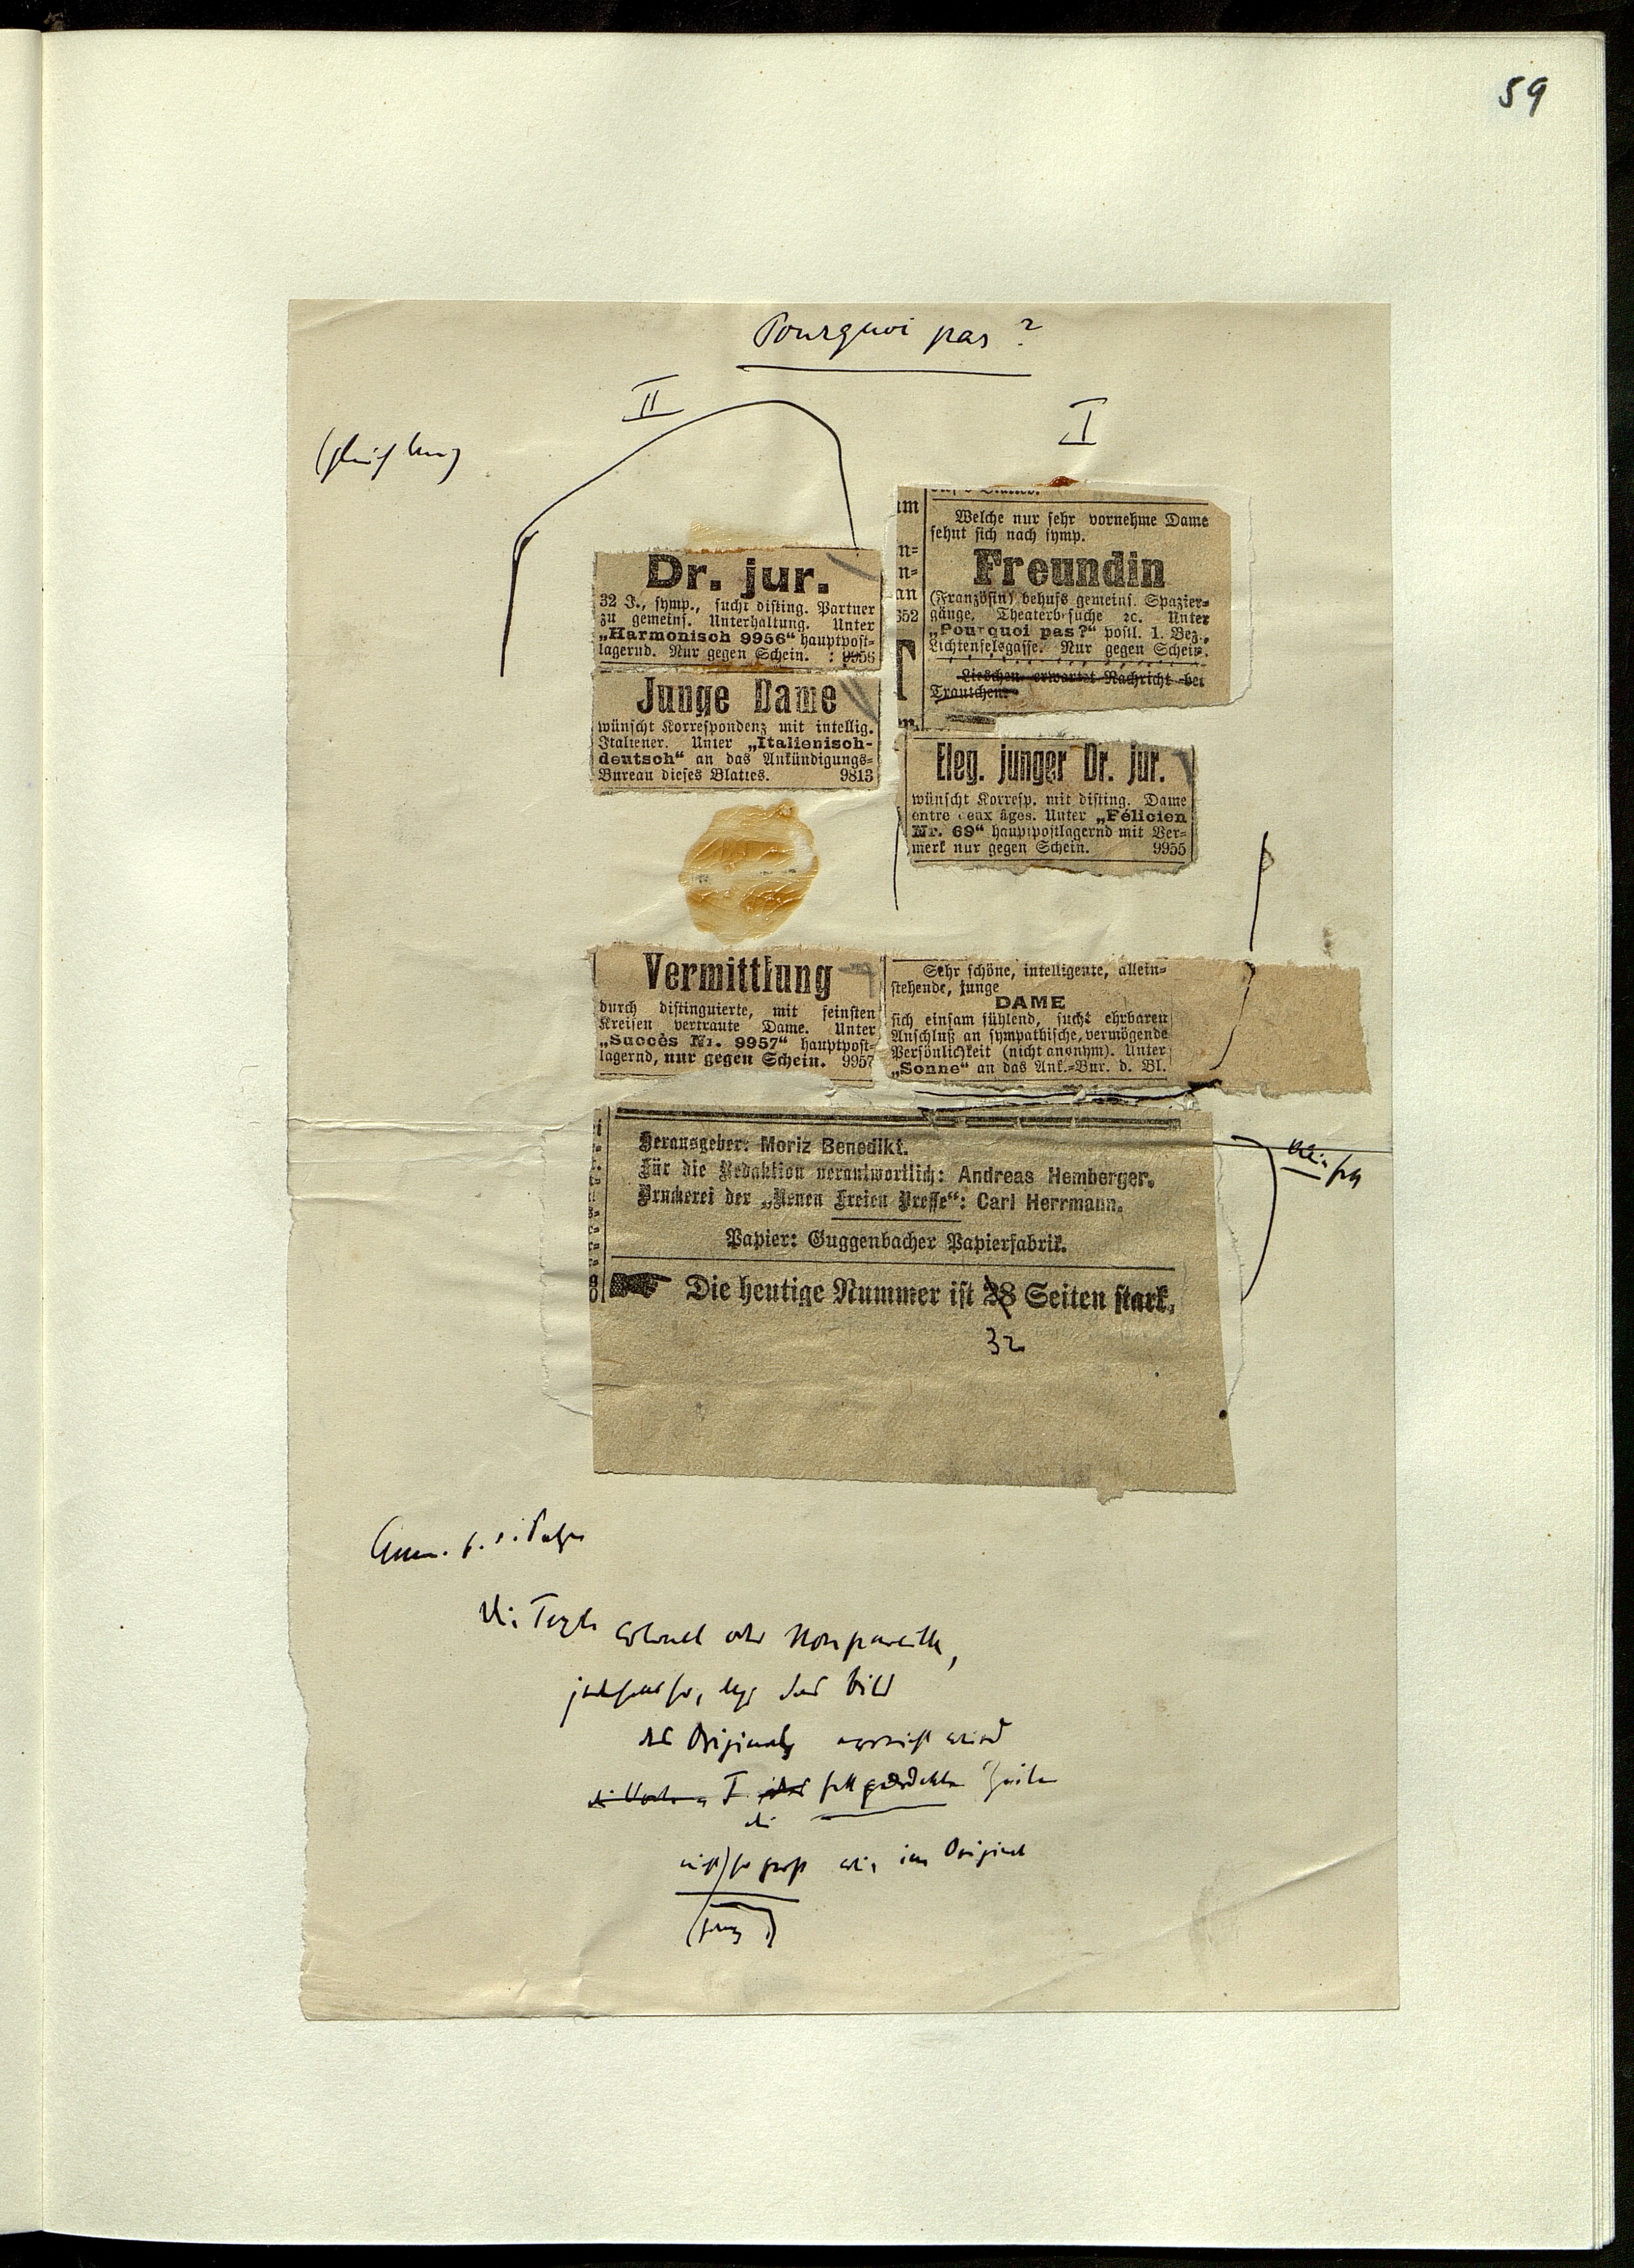 59
Pourquoi pas?
II
I
Dr. jur.
32 J., symp., sucht disting. Partner
zu gemeins. Unterhaltung. Unter
„Harmonisch 9956“ hauptpost-
lagernd. Nur gegen Schein. : 9956
Junge Dame
wünscht Korrespondenz mit intellig.
Italiener. Unter „Italienisch-
deutsch“ an das Ankündigungs-
Bureau dieses Blattes. 9813
Welche nur sehr vornehme Dame
sehnt sich nach symp.
Freundin
(Französin) behufs gemeins. Spazier-
gänge, Theaterb suche ꝛc. Unter
„Pourquoi pas?“ postl. 1. Bez.,
Lichtenfelsgasse. Nur gegen Schein.
Lieschen erwartet Nachricht bei
Trautchen
Eleg. junger Dr. jur.
wünscht Korresp. mit disting. Dame
entre deux âges. Unter „Félicien
Nr. 69“ hauptpostlagernd mit Ver-
merk nur gegen Schein. 9955
Vermittlung
durch distinguierte, mit feinsten
Kreisen vertraute Dame. Unter
„Succès Nr. 9957“ hauptpost-
lagernd, nur gegen Schein. 9957
Sehr schöne, intelligente, allein-
stehende, junge
DAME
sich einsam fühlend, sucht ehrbaren
Anschluß an sympathische, vermögende
Persönlichkeit (nicht anonym). Unter
„Sonne“ an das Ank.-Bur. d. Bl.
Herausgeber: Moriz Benedikt.
Für die Redaktion verantwortlich: Andreas Hemberger.
Druckerei der „Neuen Freien Presse“: Carl Herrmann.
Papier: Guggenbacher Papierfabrik.
Die heutige Nummer ist 28 Seiten stark.
32
die Texte Colonel oder Nonpareille,
das Bild
des Originals erreicht wird
I die fett gedruckten Zeilen
nicht) so groß wie im Original